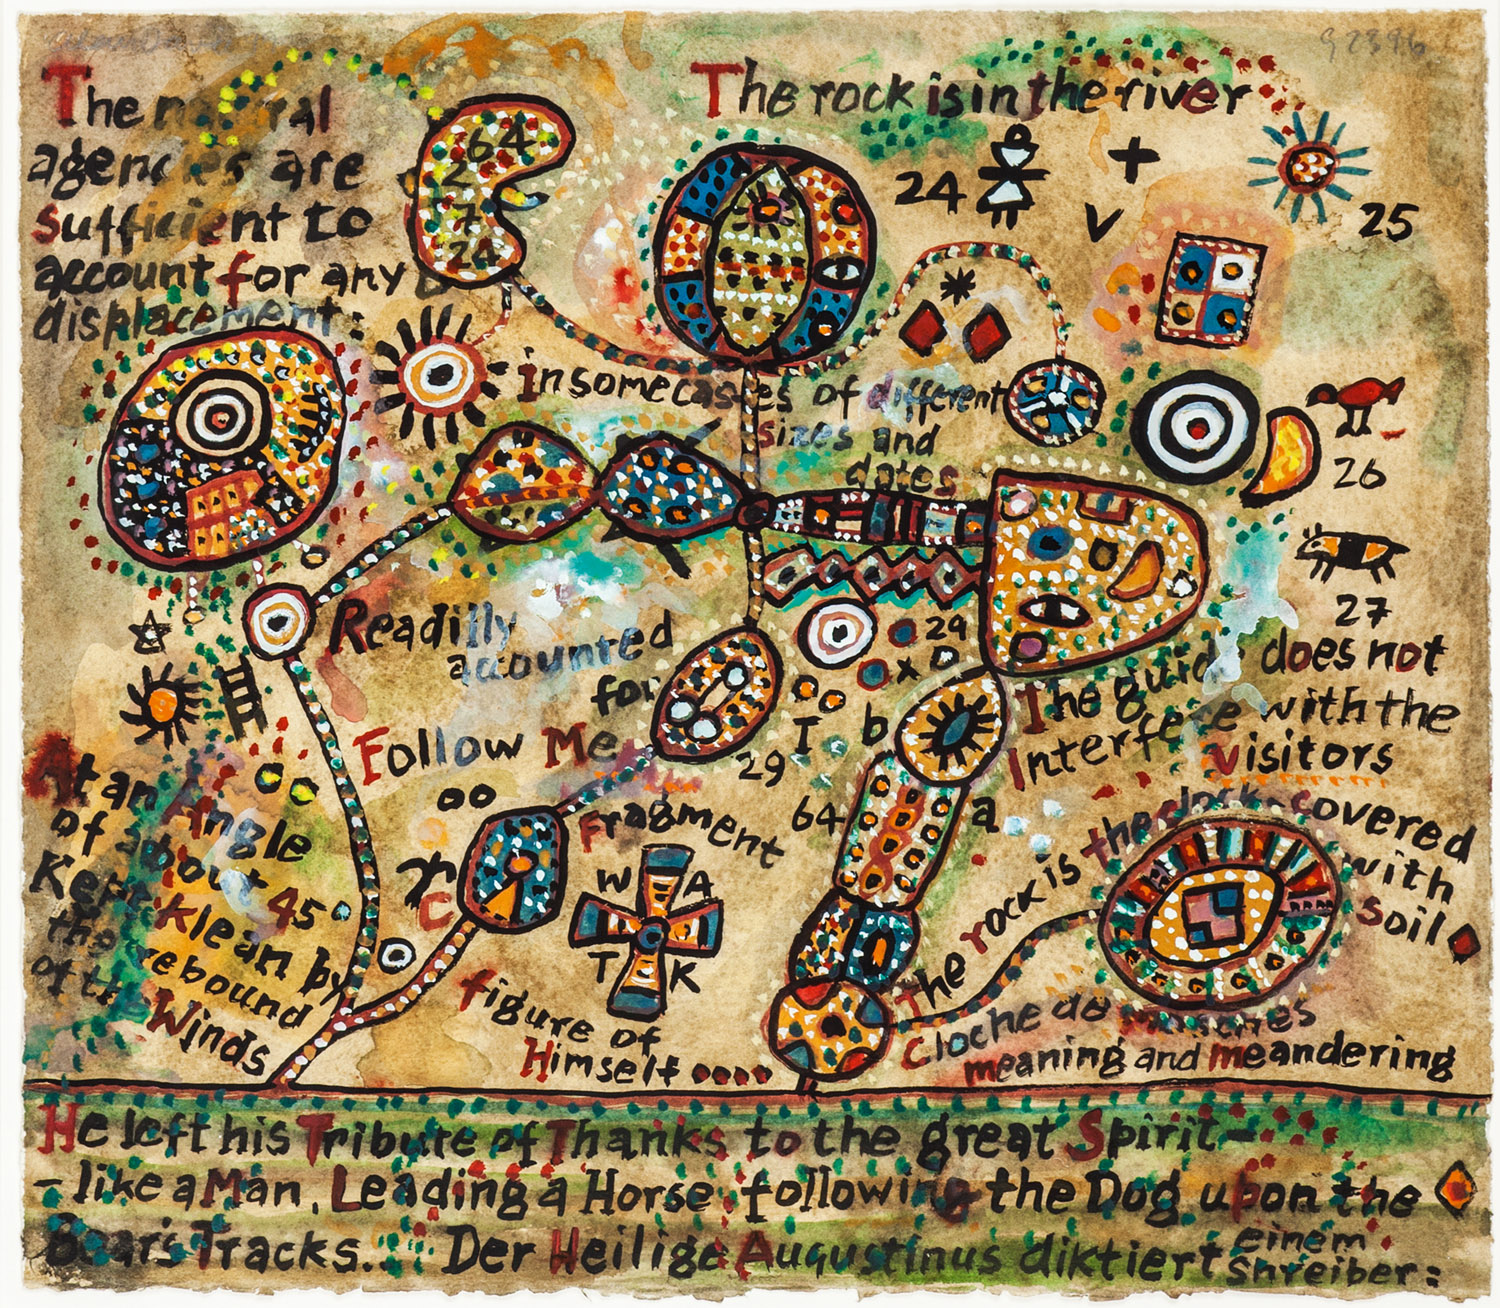 The natural
agencies are
sufficient to
account for any
displacement:
The rock is in the river
g 2396
64
2
7
24
24
+
v
25
in some cases of different
sizes and
dates
26
27
Readilly
accounted
for
Follow Me
29
x
I
b
29
64
a
The guide does not
Interfere with the
visitors
At an Angle
of about 45°
Kept Klean by
the rebound
of the
Winds
Fragment
C
W A
T K
figure of
Himself....
The rock is the clock covered
with
soil
Cloche de
meaning and meandering
He left his Tribute of Thanks to the great Spirit-
- like a Man, Leading a Horse following the Dog upon the
Bear's Tracks... Der Heilige Augustinus diktiert einem
Shreiber: